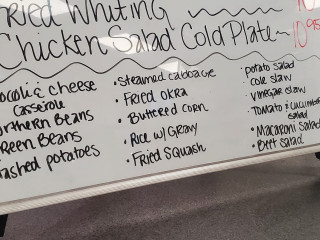 Fried Whiting
Chicken Salad Cold Plate 10.95
Broccoli & cheese
Casserole
Northern Beans
Green Beans
Mashed potatoes
• Steamed cabbage
• Fried okra
• Buttered corn
• Rice w/ Gravy
• Fried Squash
• potato salad
• cole slaw
• vinegar slaw
• Tomato & cucumber
salad
• Macaroni Salad
• Beet Salad